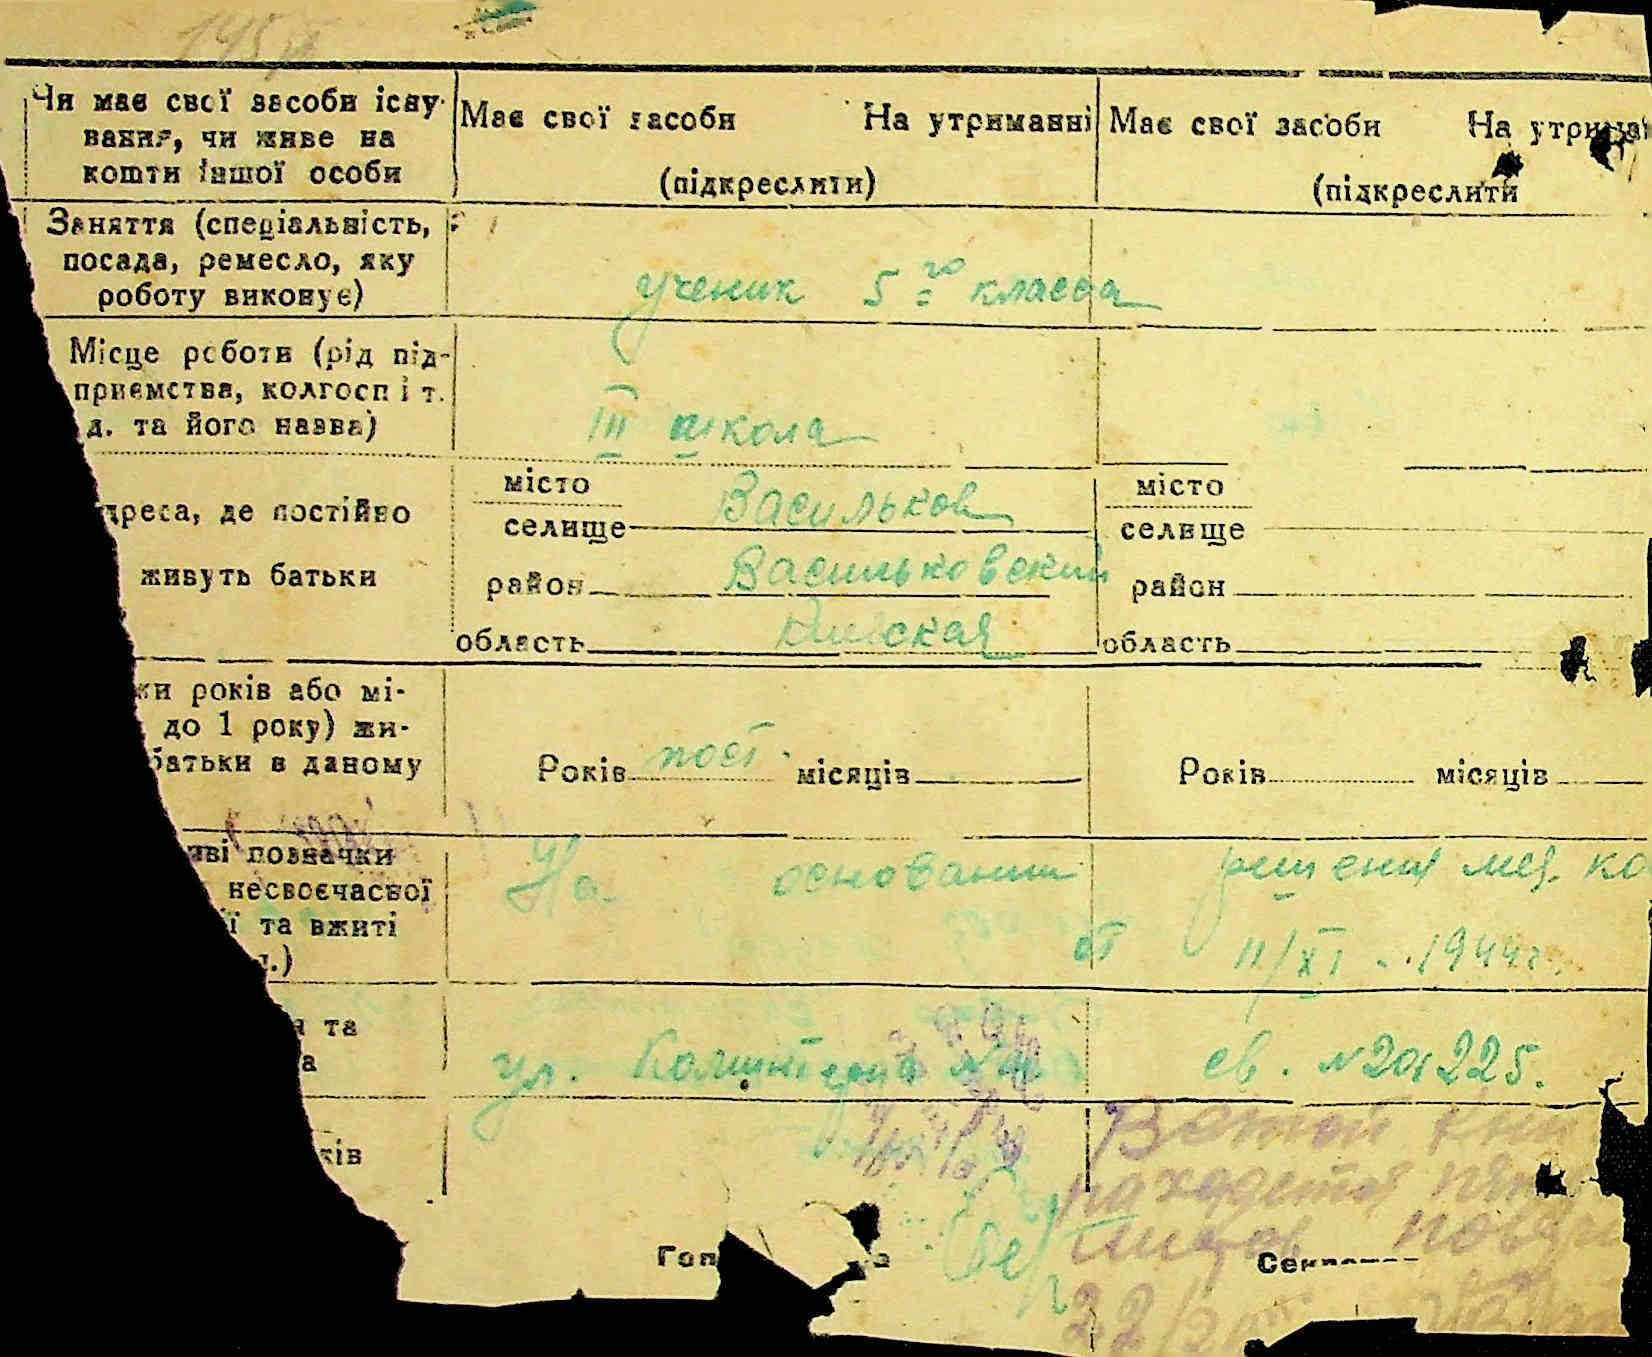 Чи має свої засоби існу-
вання, чи живе на
кошти іншої особи
Має свої засоби На утриманні
(підкреслити)
Має свої засоби На утриман
(підкреслити
Заняття (спеціальність,
посада, ремесло, яку
роботу виконує)
ученик 5го класса
Місце роботи (рід під-
приємства, колгосп і т.
д. та його назва)
III школа
дреса, де постійно
живуть батьки
місто
селище Васильков
район Васильковский
область Киевская
місто
селище
район
область
ки років або мі-
до 1 року) жи-
батьки в даному
Років пост. місяців
Років місяців
иві позначки
несвоєчасної
ї та вжиті
.)
На основании решения мед. ко
от 11/XI - 1944г.
я та
а
ул. Коминтерна св. №201225.
ків
В этой кни
находется
листов
22/
Гол а
Секретар